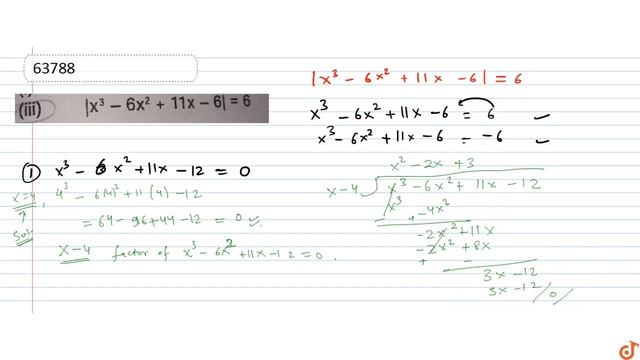 63788
(iii) |x³ − 6x² + 11x − 6| = 6
|x³ − 6x² + 11x − 6| = 6
x³ − 6x² + 11x − 6 = 6 ✓
x³ − 6x² + 11x − 6 = −6 ✓
① x³ − 6x² + 11x − 12 = 0
x=4, 4³ − 6(4)² + 11(4) − 12
= 64 − 96 + 44 − 12 = 0 ✓
Sol.
x−4 factor of x³ − 6x² + 11x − 12 = 0.
x² − 2x + 3
x−4 ) x³ − 6x² + 11x − 12
x³ − 4x²
− +
−2x² + 11x
−2x² + 8x
+ −
3x − 12
3x − 12
0